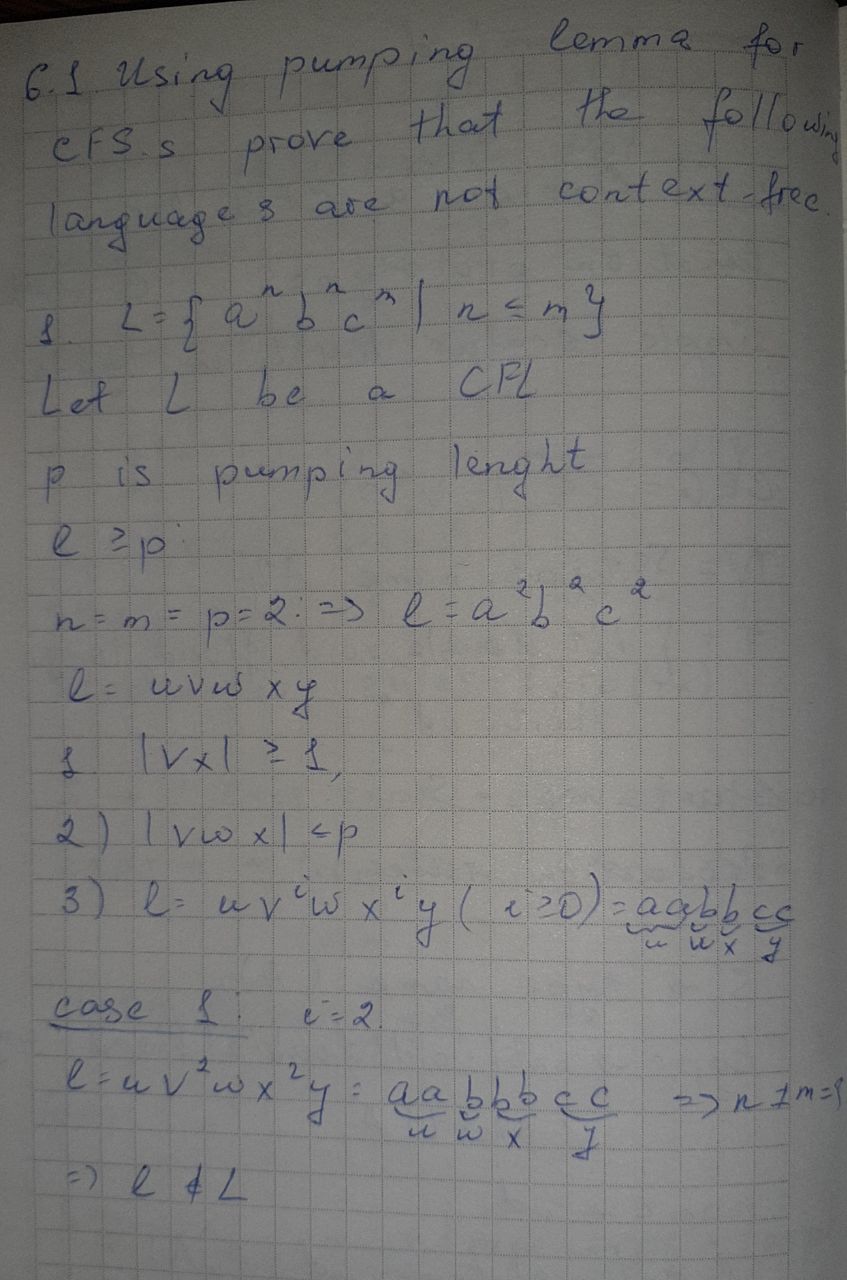 6.1 Using pumping lemma for
CFS.s prove that the following
languages are not context-free.
1. L={aⁿbⁿcᵐ | n ≤ m}
Let L be a CFL
p is pumping lenght
l ≥p
n=m=p=2: => l=a²b²c²
l= uvwxy
1 |vx| ≥ 1,
2) |vwx| ≤p
3) l= uvⁱwxⁱy (i≥0)=aabbcc
u w x y
case 1: i=2.
l=uv²wx²y= aabbbcc => n≠m=>
u w x y
=> l ∉ L